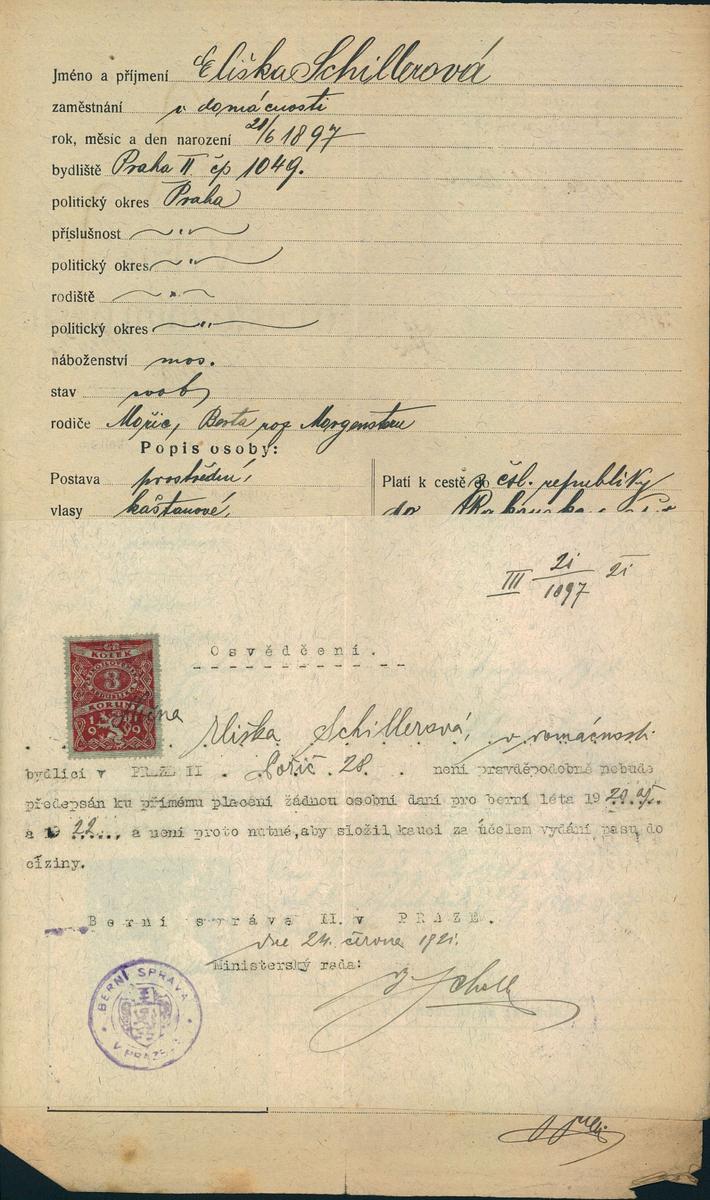 Jméno a příjmení Eliška Schillerová
zaměstnání v domácnosti
rok, měsíc a den narození 21/6 1897
bydliště Praha II čp 1049.
politický okres Praha
příslušnost "
politický okres "
rodiště "
politický okres "
náboženství mos.
stav svob
rodiče Mořic, Berta roz Morgenstern
Popis osoby:
Postava prostřední,
Platí k cestě do čsl. republiky
vlasy kaštanové,
do Rakouska
III 21/1897 21
Osvědčení.
KOLEK
ČESKOSLOVENSKÁ
REPUBLIKA
3
KORUNY
1919
Eliška Schillerová, v domácnosti
bydlící v PRAZE II. Poříč 28. není pravděpodobně nebude
předepsán ku přímému placení žádnou osobní daní pro berní léta 1920, 21
a 1922.... a není proto nutné,aby složil kauci za účelem vydání pasu do
ciziny.
Berní správa II. v PRAZE.
dne 24. června 1921.
Ministerský rada:
BERNÍ SPRÁVA
V PRAZE